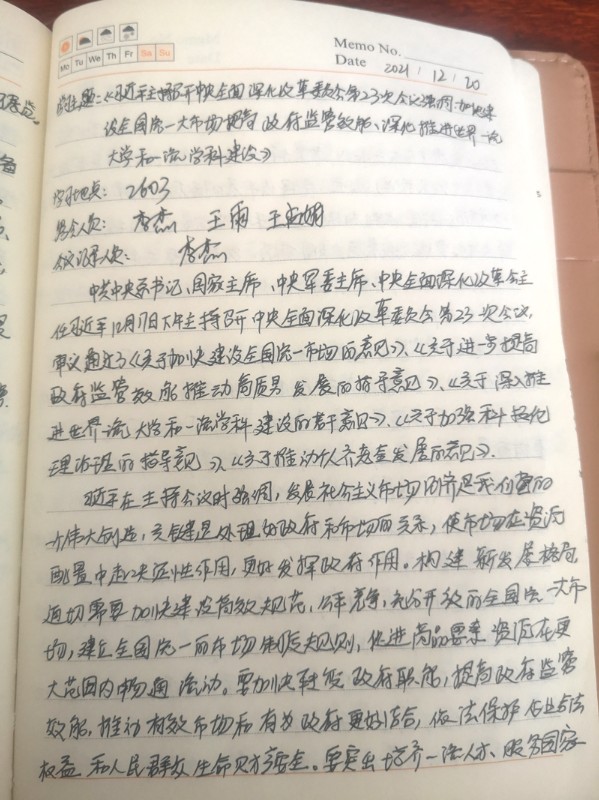 Memo No.
Mo Tu We Th Fr Sa Su
Date 2021 / 12 / 20
主题:《习近平主持召开中央全面深化改革委员会第23次会议强调 加快建
设全国统一大市场提高政府监管效能、深化推进世界一流
大学和一流学科建设》
学习地点: 2603
参会人员: 李杰 王雨
会议记录人员: 李杰
中共中央总书记、国家主席、中央军委主席、中央全面深化改革会主
任习近平12月17日下午主持召开中央全面深化改革委员会第23次会议,
审议通过了《关于加快建设全国统一市场的意见》、《关于进一步提高
政府监管效能推动高质量发展的指导意见》、《关于深入推
进世界一流大学和一流学科建设的若干意见》、《关于加强科技伦
理治理的指导意见》、《关于推动个人养老金发展的意见》.
习近平在主持会议时强调,发展社会主义市场经济是我们党的
一个伟大创造,关键是处理好政府和市场的关系,使市场在资源
配置中起决定性作用,更好发挥政府作用。构建新发展格局,
迫切需要加快建设高效规范,公平竞争,充分开放的全国统一大市
场,建立全国统一的市场制度规则,促进商品要素资源在更
大范围内畅通流动。要加快转变政府职能,提高政府监管
效能,推动有效市场和有为政府更好结合,依法保护企业合法
权益和人民群众生命财产安全。要突出培养一流人才、服务国家